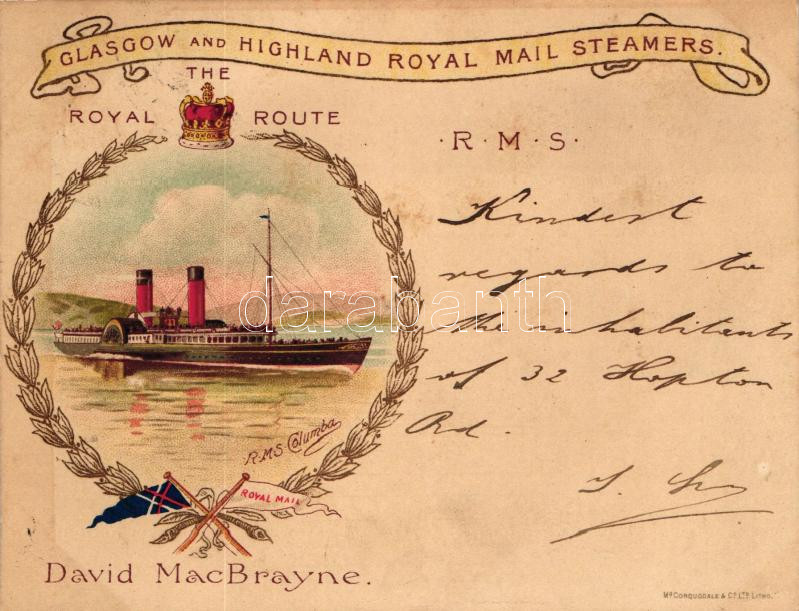 GLASGOW AND HIGHLAND ROYAL MAIL STEAMERS.
THE
ROYAL ROUTE
· R · M · S ·
Kindest
regards to
the inhabitants
of 32 Hopton
Rd.
R.M.S Columba
ROYAL MAIL
David MacBrayne.
McCORQUODALE & Co. LTD. LITHO.
darabanth